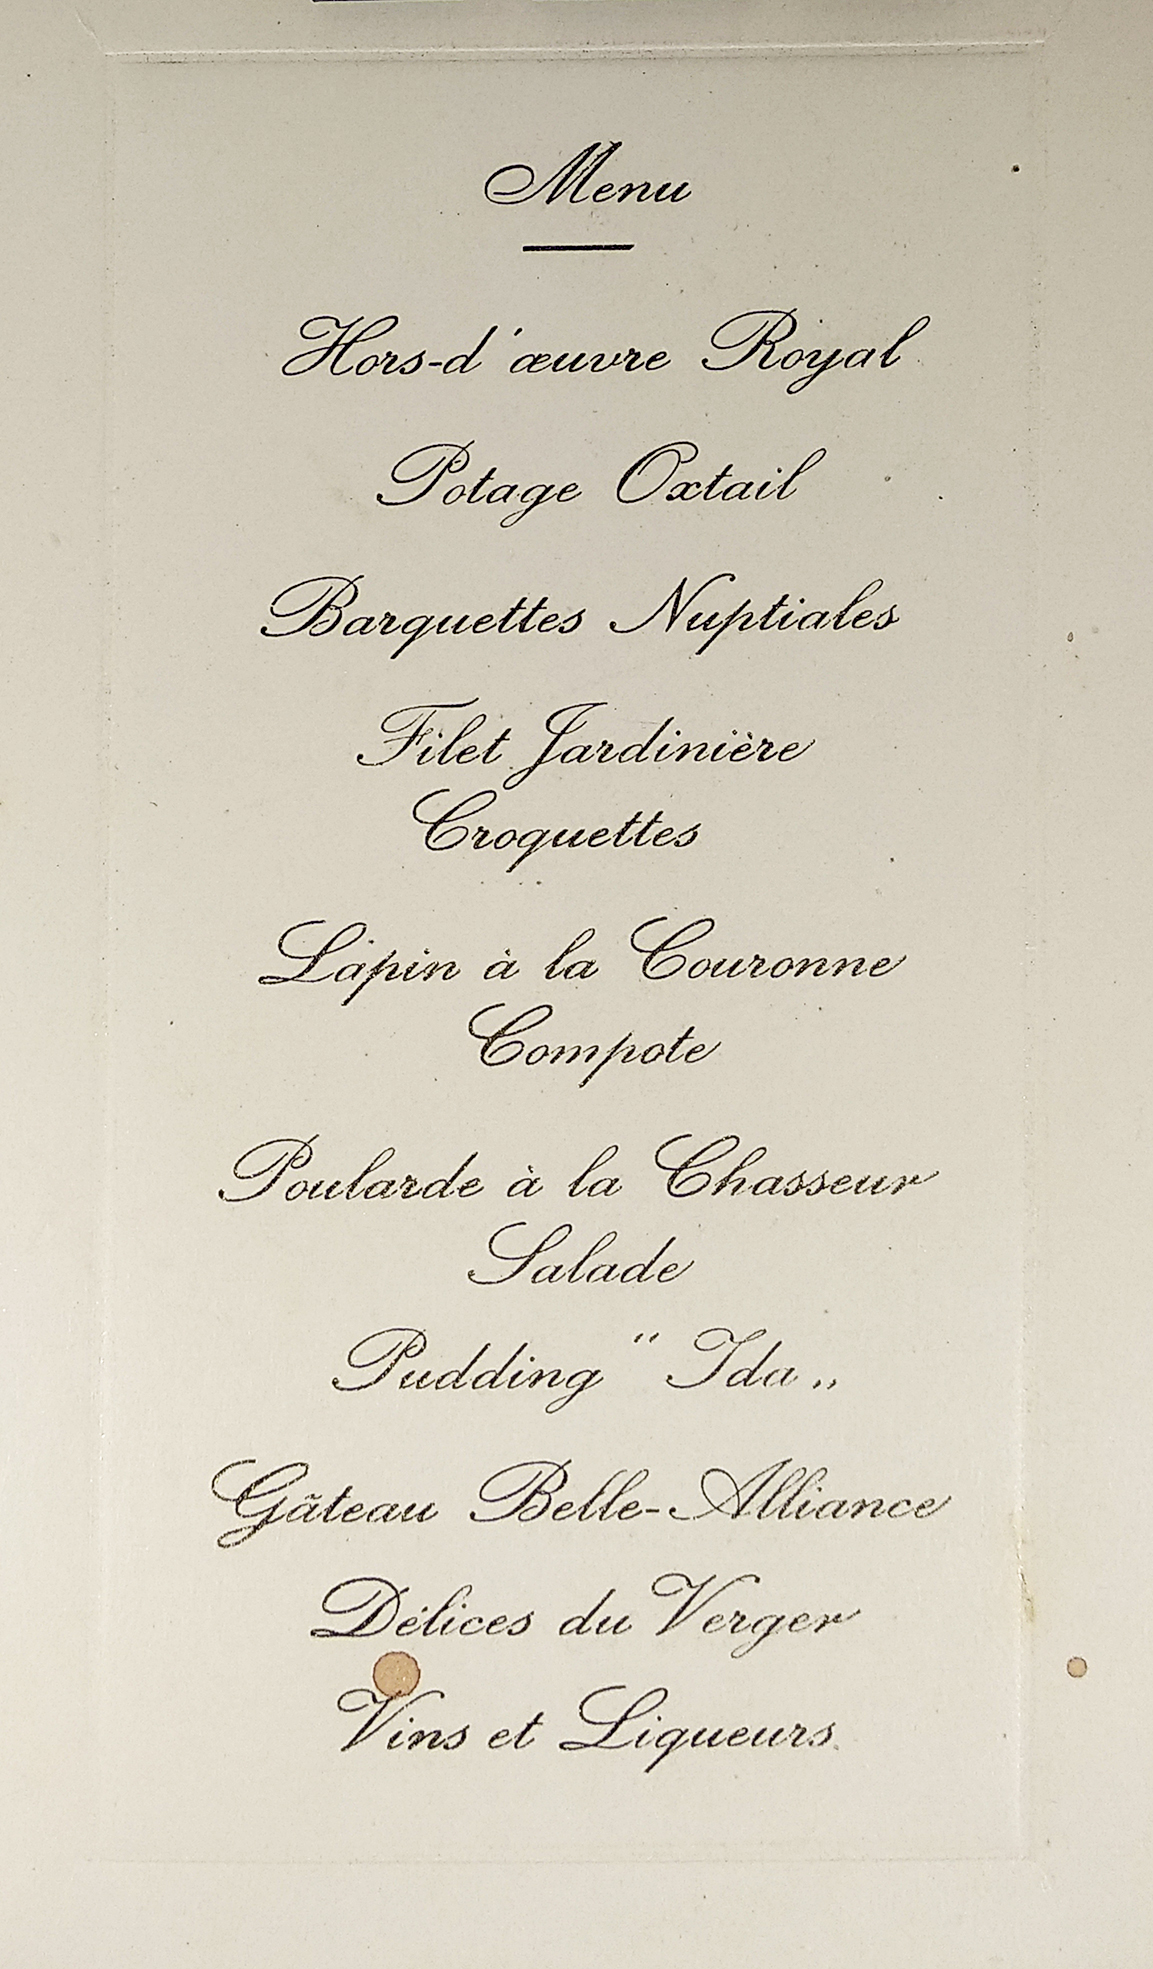 Menu
Hors-d'œuvre Royal
Potage Oxtail
Barquettes Nuptiales
Filet Jardinière
Croquettes
Lapin à la Couronne
Compote
Poularde à la Chasseur
Salade
Pudding “ Ida „
Gâteau Belle-Alliance
Délices du Verger
Vins et Liqueurs.